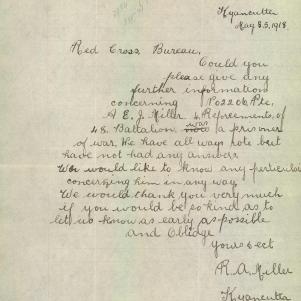 Kyancutta
May 25, 1918.
Red Cross Bureau,
Could you
please give any
further information
concerning Po 2206, Pte,
A E. J. Miller 4 Reprements, of
48. Battalion was a prisoner
of war. We have all ways rote but
have not had any answer.
We would like to know any perticulars
concerging him in any way
We would thank you very much
if you would be so kind as to
let us know as early as possible
and Oblidge
yours ect
R. A. Miller
Kyancutta